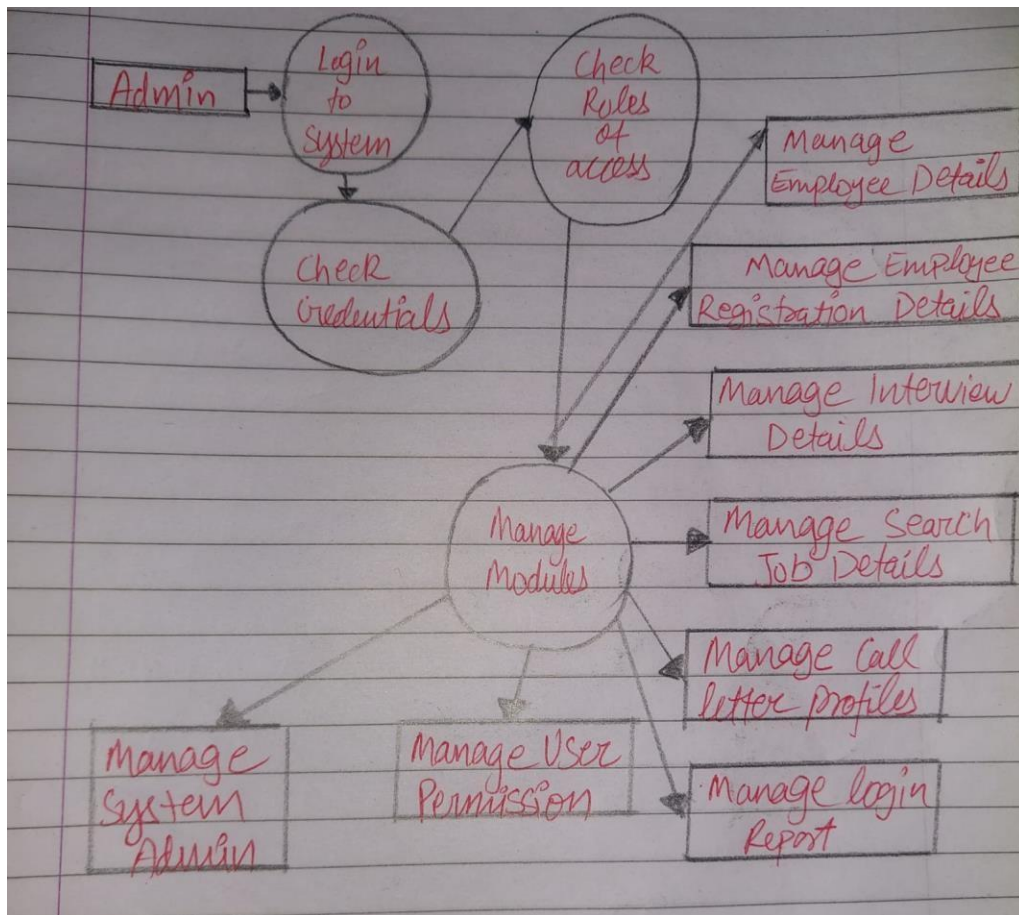 Admin
Login
to
System
Check
Credentials
Check
Roles
of
access
Manage
Employee Details
Manage Employee
Registration Details
Manage Interview
Details
Manage Search
Job Details
Manage
Modules
Manage Call
letter profiles
Manage login
Report
Manage User
Permission
Manage
System
Admin